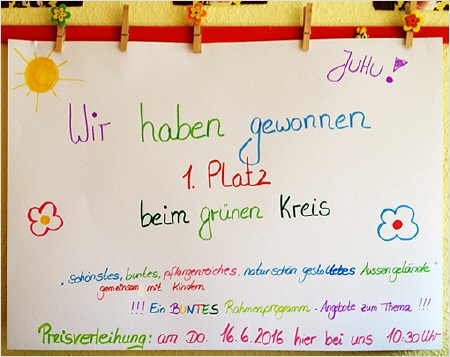 JUHU!
Wir haben gewonnen
1. Platz
beim grünen Kreis
"schönstes, buntes, pflanzenreiches, naturschön gestaltetes Aussengelände"
gemeinsam mit Kindern
!!! Ein BUNTES Rahmenprogramm - Angebote zum Thema !!!
Preisverleihung: am Do. 16.6.2016 hier bei uns 10:30 Uhr